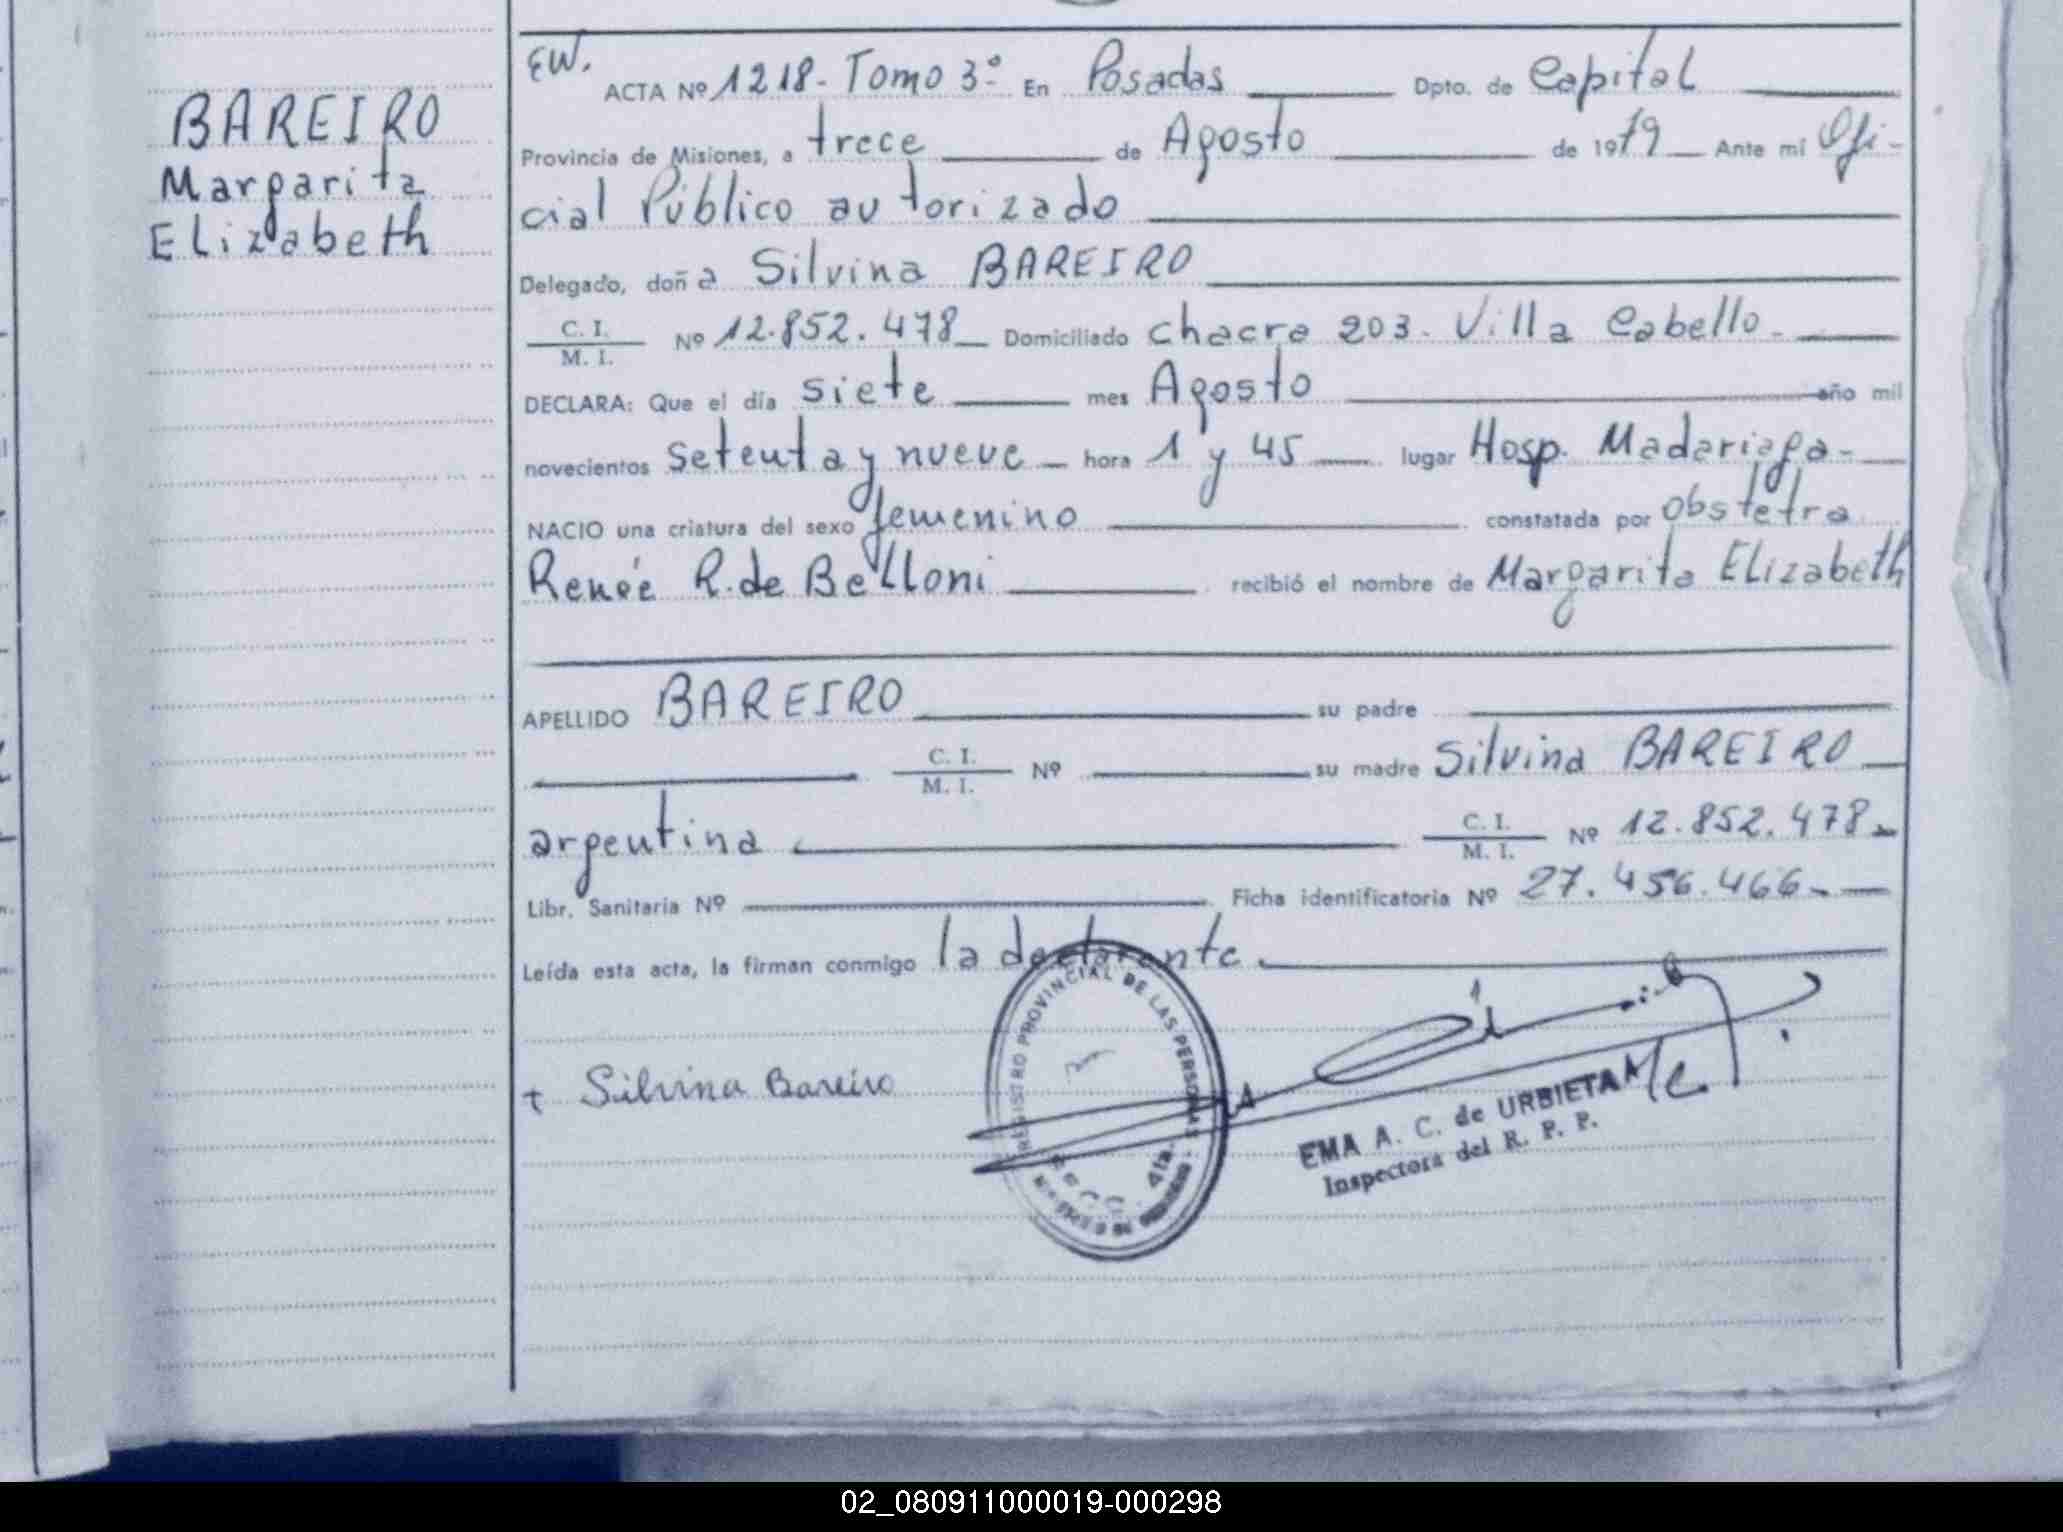 BAREIRO
Margarita
Elizabeth
EW.
ACTA Nº 1218- Tomo 3º En Posadas Dpto. de Capital
Provincia de Misiones, a trece de Agosto de 1979 Ante mi Ofi-
cial Público autorizado
Delegado, doña Silvina BAREIRO
C. I.
M. I. Nº 12.852.478 Domiciliado chacra 203. Villa Cabello-
DECLARA: Que el día siete mes Agosto año mil
novecientos setenta y nueve hora 1 y 45 lugar Hosp. Madariaga-
NACIO una criatura del sexo femenino constatada por obstetra
Renée R. de Belloni recibió el nombre de Margarita Elizabeth
APELLIDO BAREIRO su padre
C. I.
M. I. Nº su madre Silvina BAREIRO
argentina C. I.
M. I. Nº 12.852.478-
Libr. Sanitaria Nº Ficha identificatoria Nº 27.456.466-
Leída esta acta, la firman conmigo la declarante
REGISTRO PROVINCIAL DE LAS PERSONAS
4ta.
+ Silvina Bareiro
EMA A. C. de URBIETA
Inspectora del R. P. P.
02_080911000019-000298